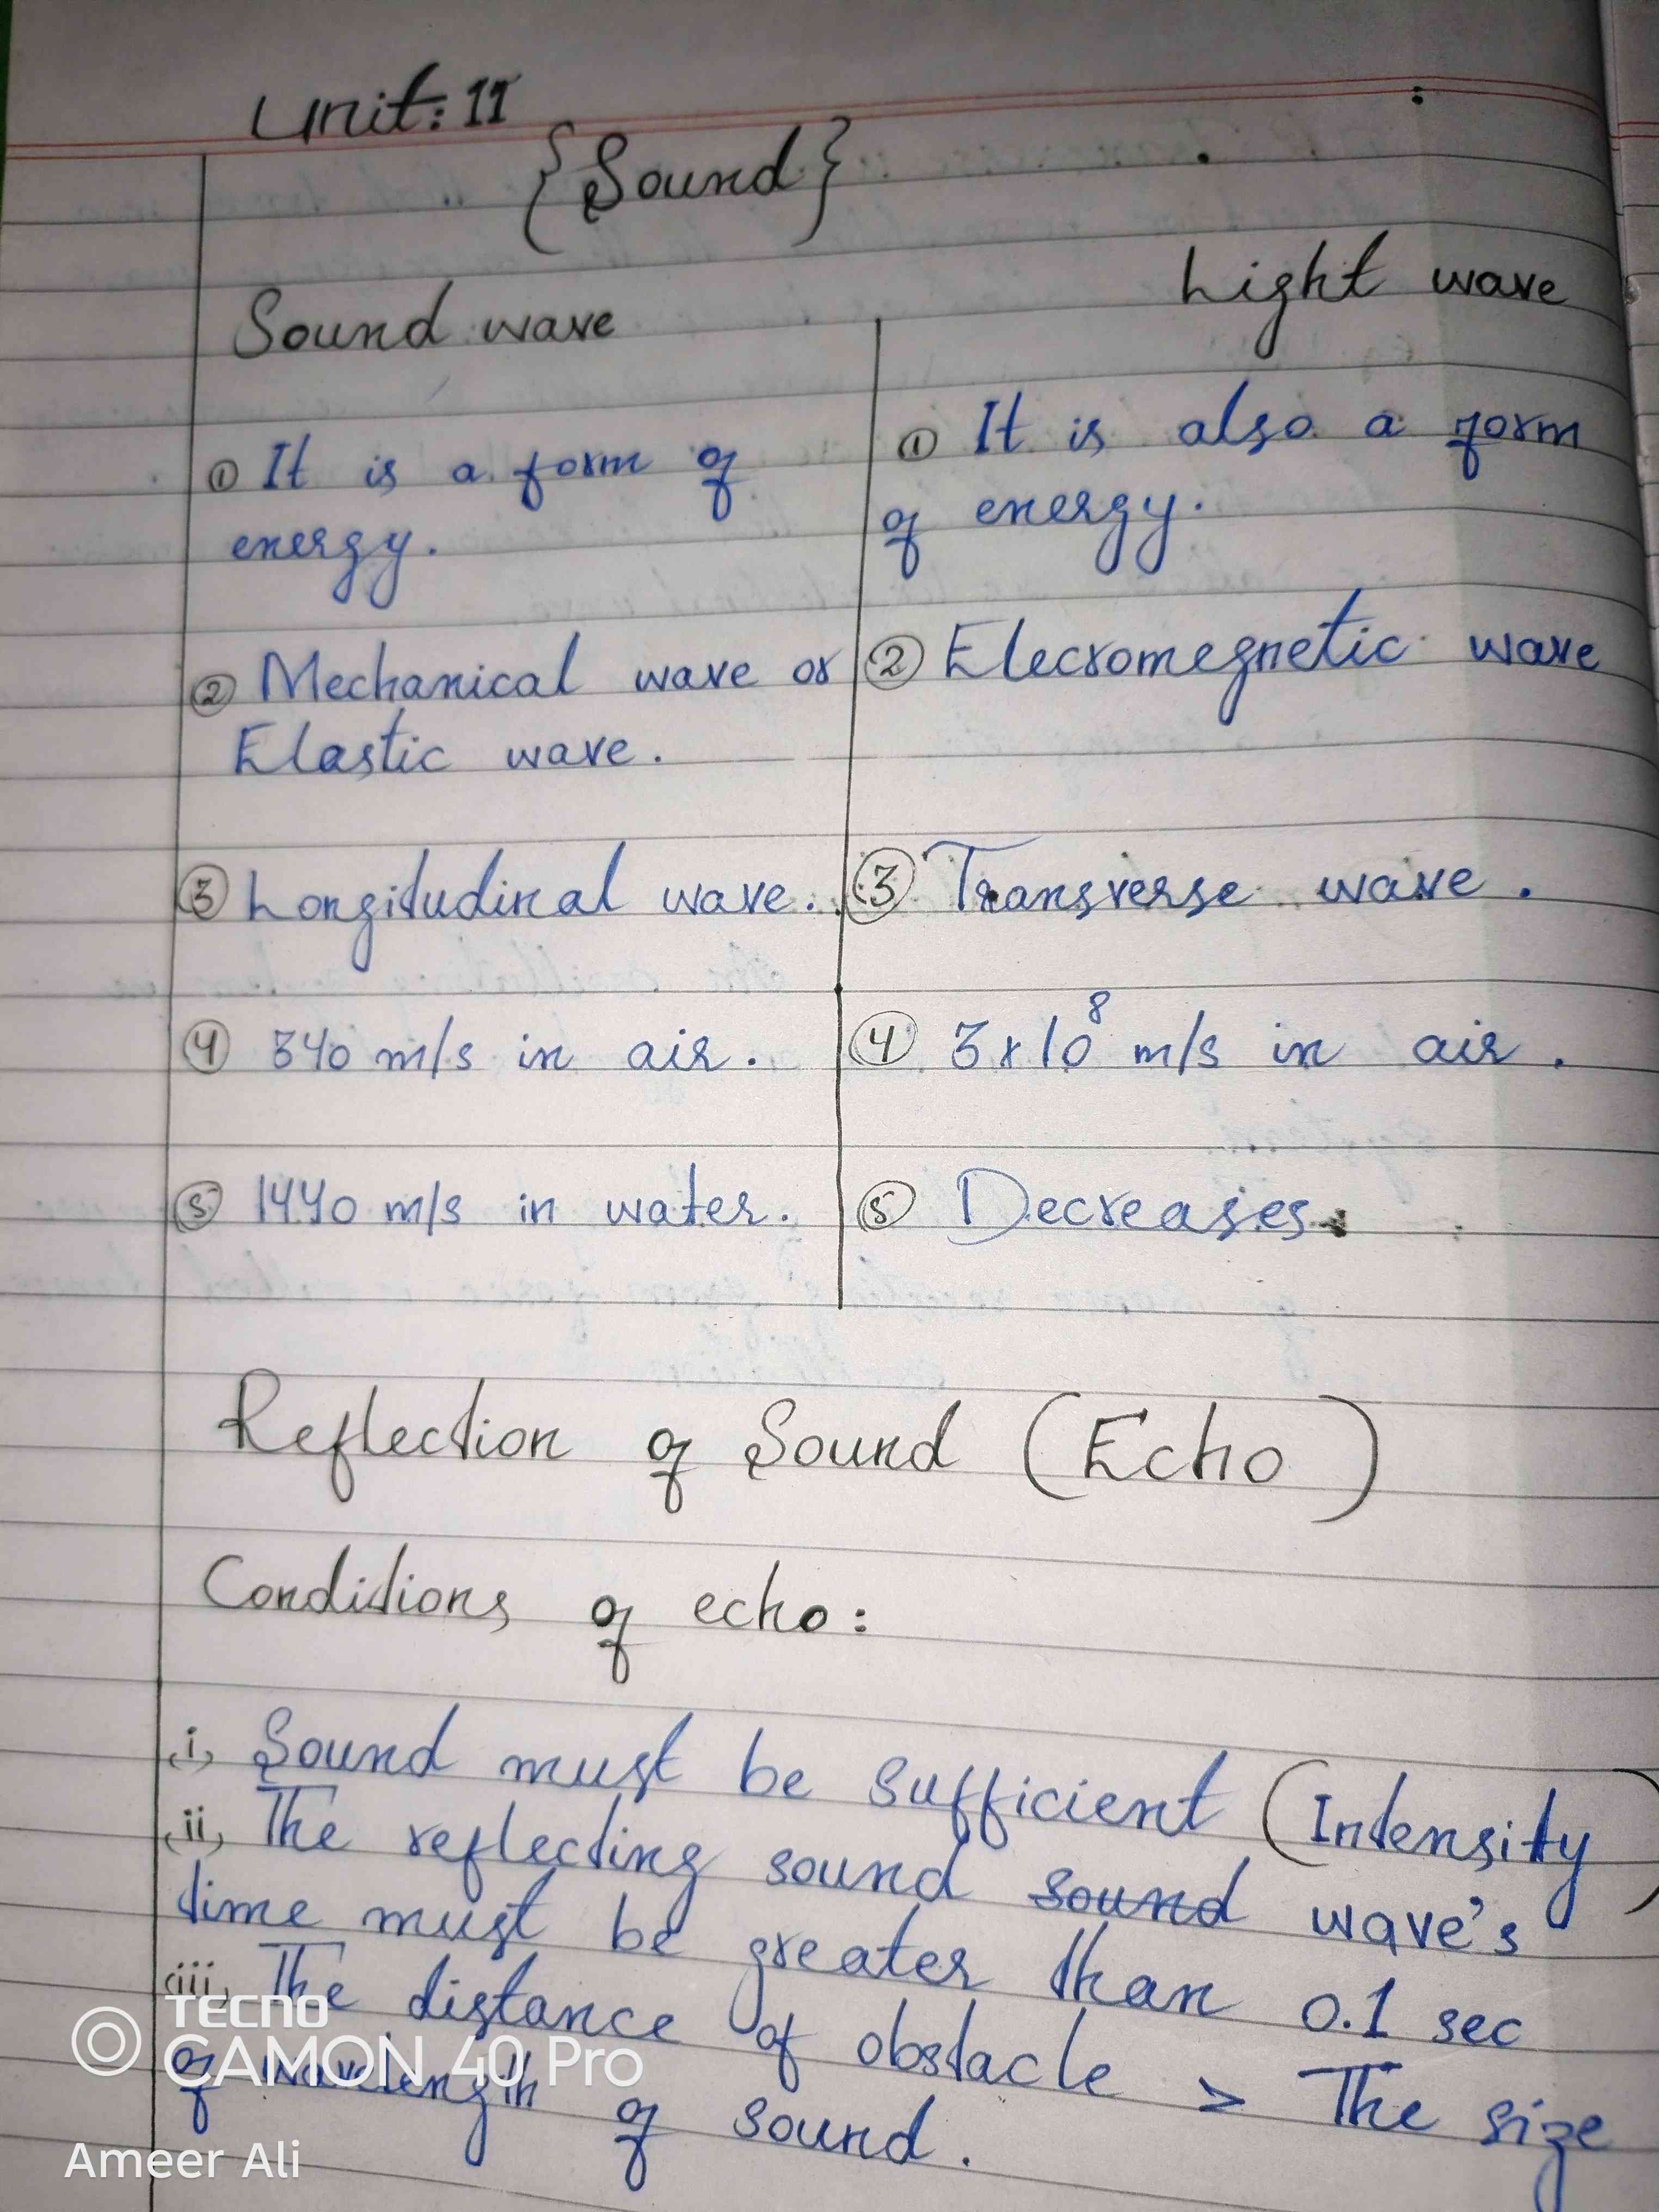 Unit: 11
{Sound}
Sound wave
Light wave
① It is a form of
energy.
① It is also a form
of energy.
② Mechanical wave or
Elastic wave.
② Elecromegnetic wave
③ Longitudinal wave.
③ Transverse wave.
④ 340 m/s in air.
④ 3x10⁸ m/s in air.
⑤ 1440 m/s in water.
⑤ Decreases.
Reflection of Sound (Echo)
Conditions of echo:
(i) Sound must be sufficient (Intensity)
(ii) The reflecting sound sound wave's
time must be greater than 0.1 sec
(iii) The distance of obstacle > The size
of wavelength of sound.
TECNO
CAMON 40 Pro
Ameer Ali